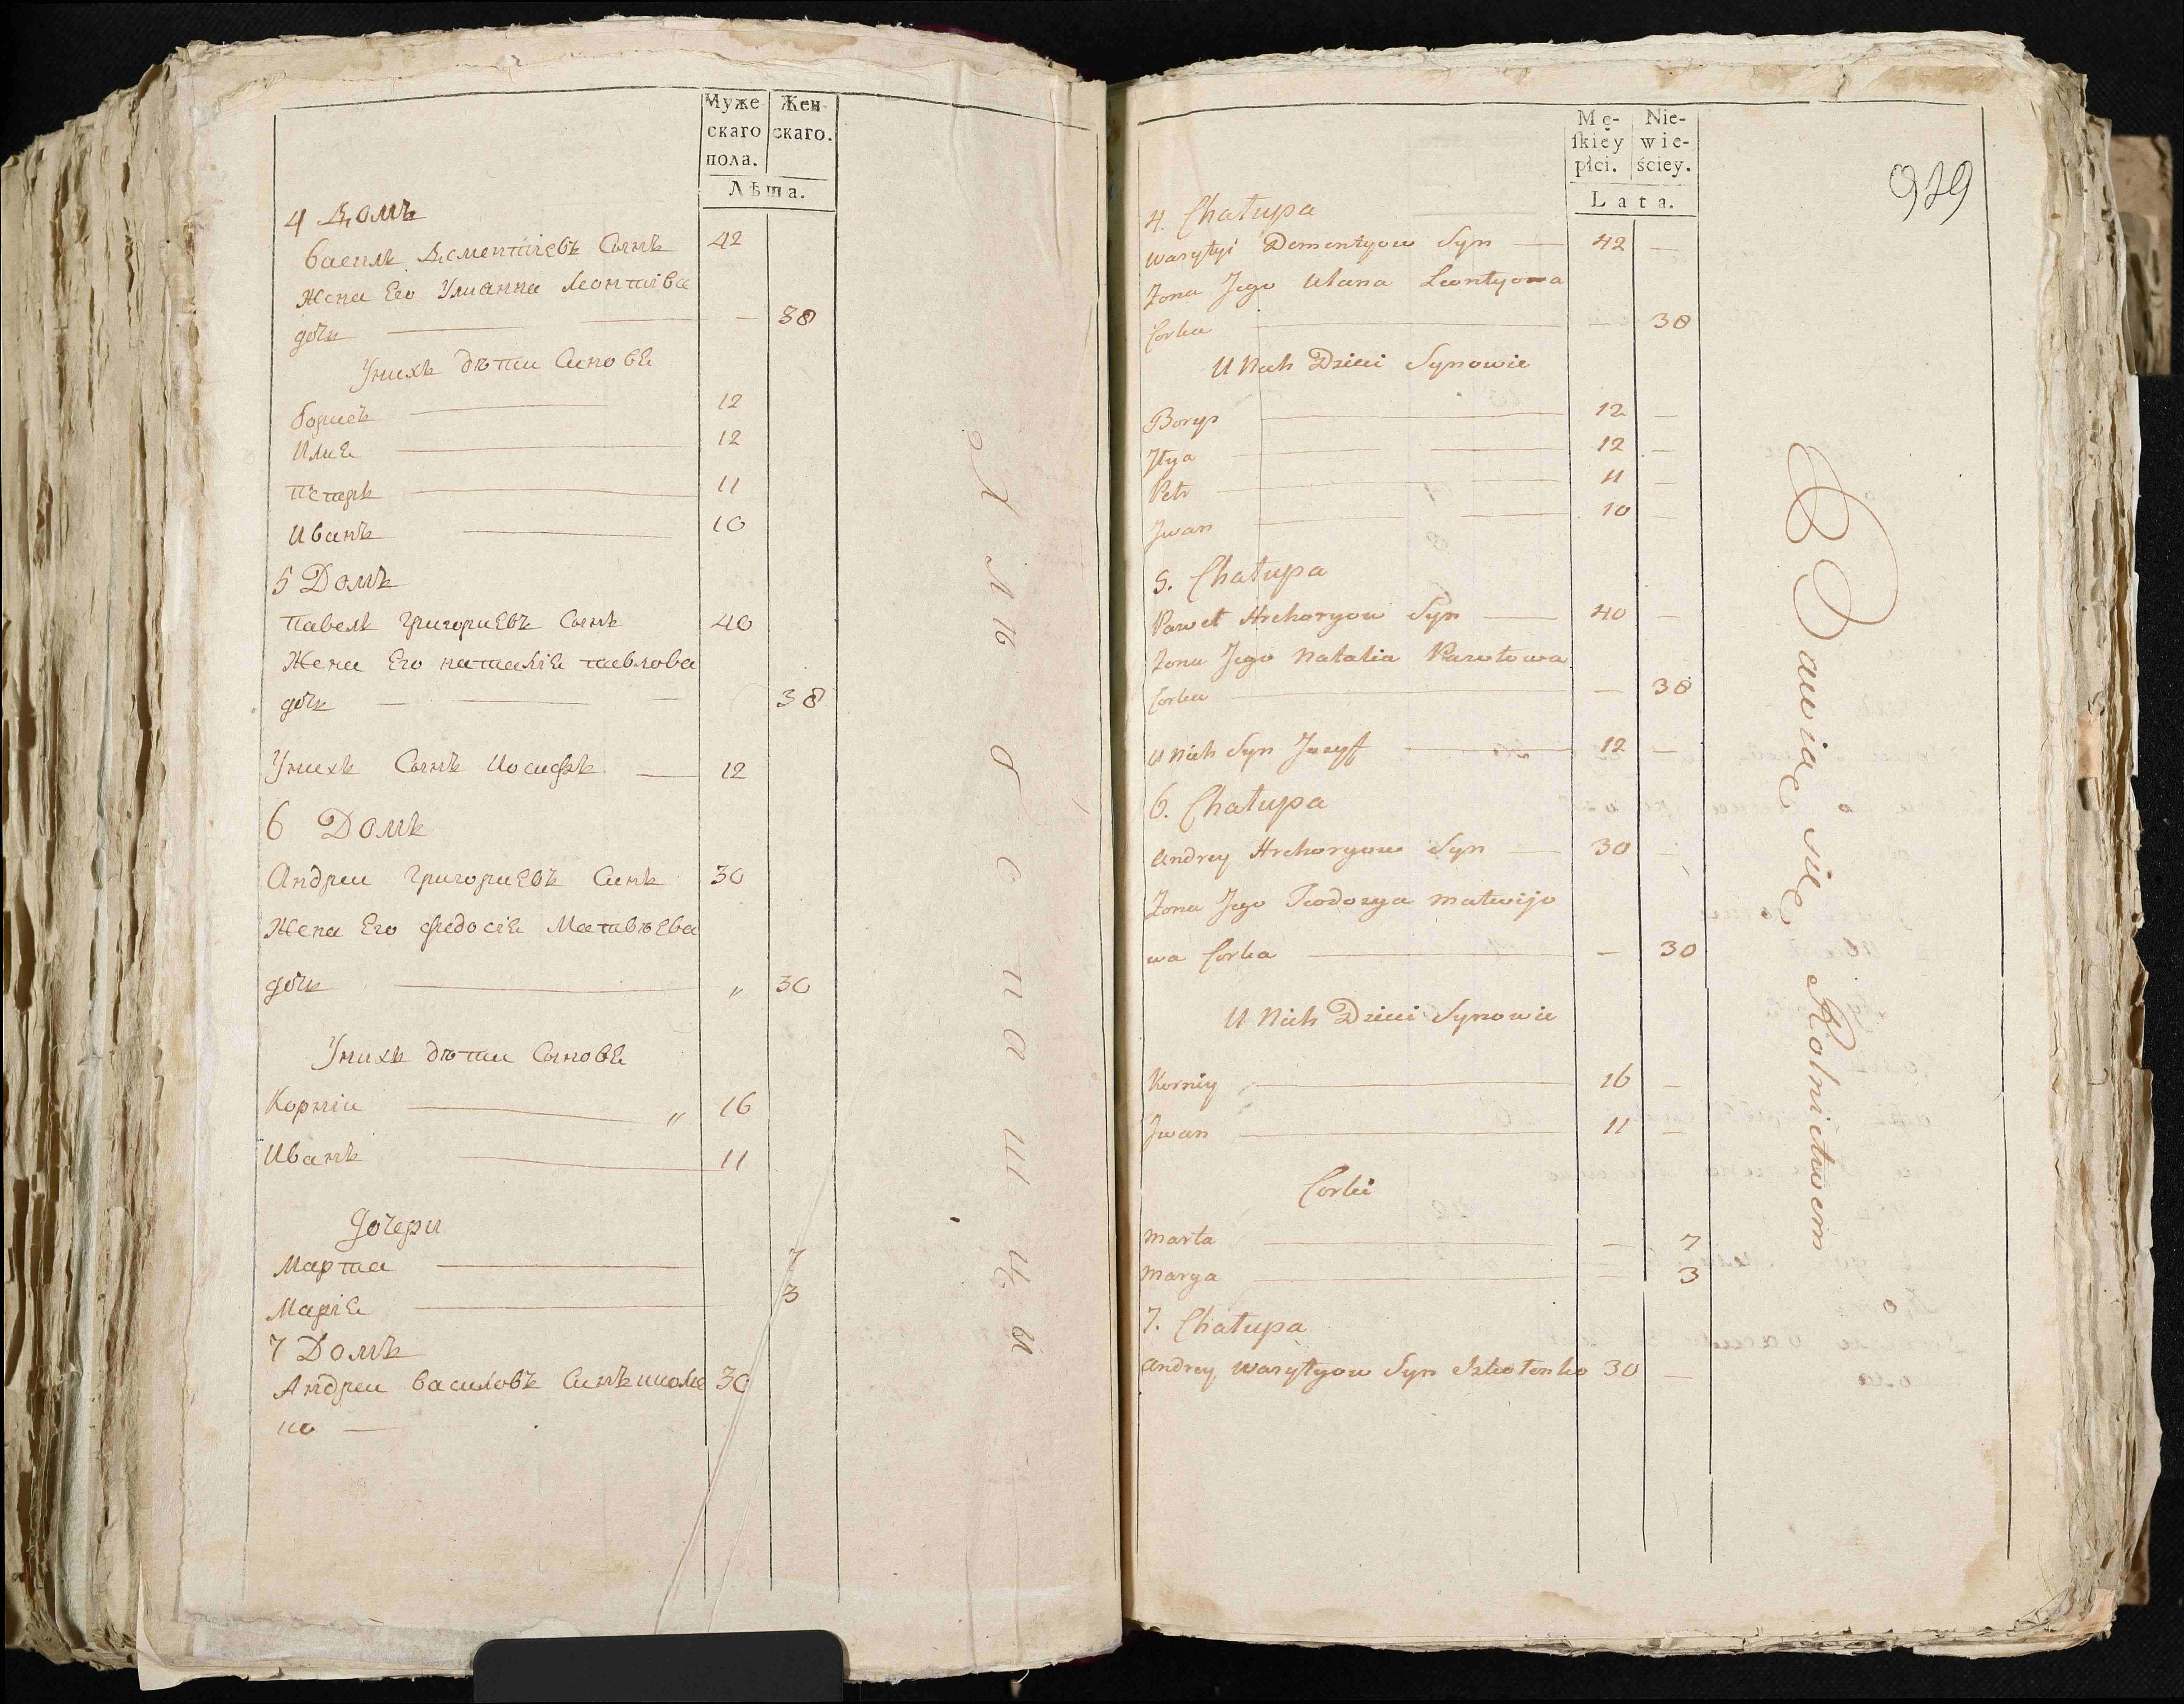 Муже
скаго
пола.
Жен-
скаго.
Лѣта.
4 Домъ
Василь Дементиевъ Сынъ 42
Жена Его Улианна Леонтиева
дочь — — 38
Унихъ дѣти Синове
Борисъ 12
Илия 12
Петръ 11
Иванъ 10
5 Домъ
Павелъ Григориевъ Сынъ 40
Жена Его наталия павлова
дочь — — — 38
Унихъ Сынъ Иосифъ — 12
6 Домъ
Андреи Григориевъ Синъ 30
Жена Его Федосия Матвѣева
дочь — „ 30
Унихъ дѣти Сынове
Корнiи — „ 16
Иванъ — 11
Дочери
Марта — 7
Мария — 3
7 Домъ
Андреи Василовъ Синъ школе 30
но —
Хлѣбопашцы
Mę-
skiey
płci.
Nie-
wie-
ściey.
Lata.
979
4. Chałupa
Wasylyi Dementyow Syn — 42 —
Żona Jego Ulana Leontyowa
Corka — — 38
U Nich Dzieci Synowie
Borys — 12 —
Jlya — 12 —
Petr — 11 —
Jwan — 10 —
5. Chałupa
Paweł Hrehoryow Syn — 40 —
Żona Jego Natalia Pawłowa
Corka — — 38
U Nich Syn Jozyff — 12 —
6. Chałupa
Andrey Hrehoryow Syn — 30 —
Żona Jego Teodozya Matwijo
wa Corka — — 30
U Nich Dzieci Synowie
Korniy — 16 —
Jwan — 11 —
Corki
Marta — — 7
Marya — — 3
7. Chałupa
Andrey Wasylyow Syn Szkolenko 30 —
Bawiąc się Rolnictwem